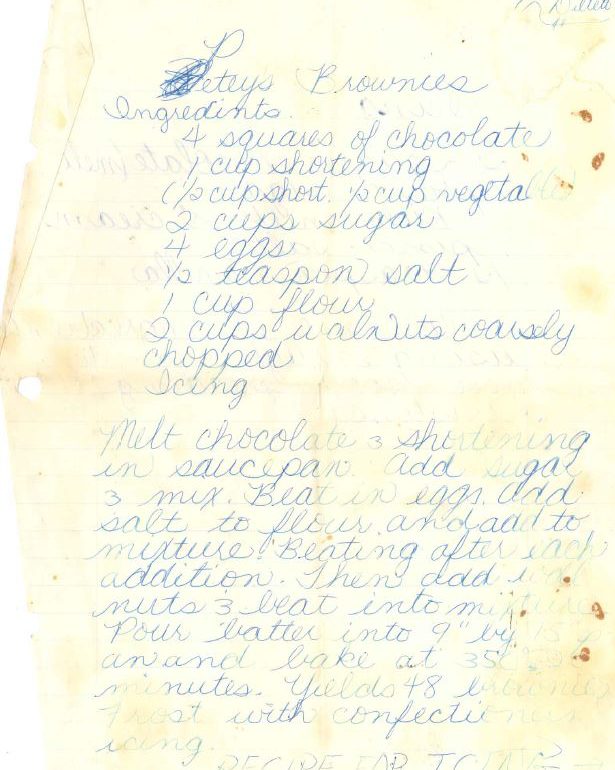 Peteys Brownies
Ingredints.
4 squares of chocolate
1 cup shortening
(1/2 cup short. 1/2 cup vegetable)
2 cups sugar
4 eggs
1/2 teaspon salt
1 cup flour
2 cups walnuts coarsely
chopped
Icing
Melt chocolate & shortening
in saucepan. Add sugar
& mix. Beat in eggs. Add
salt to flour and add to
mixture. Beating after each
addition. Then add wal
nuts & beat into mixture
Pour batter into 9" by 15" p
an and bake at 350°
minutes. Yields 48 brownies
Frost with confectioners
icing.
RECIPE FOR ICING →